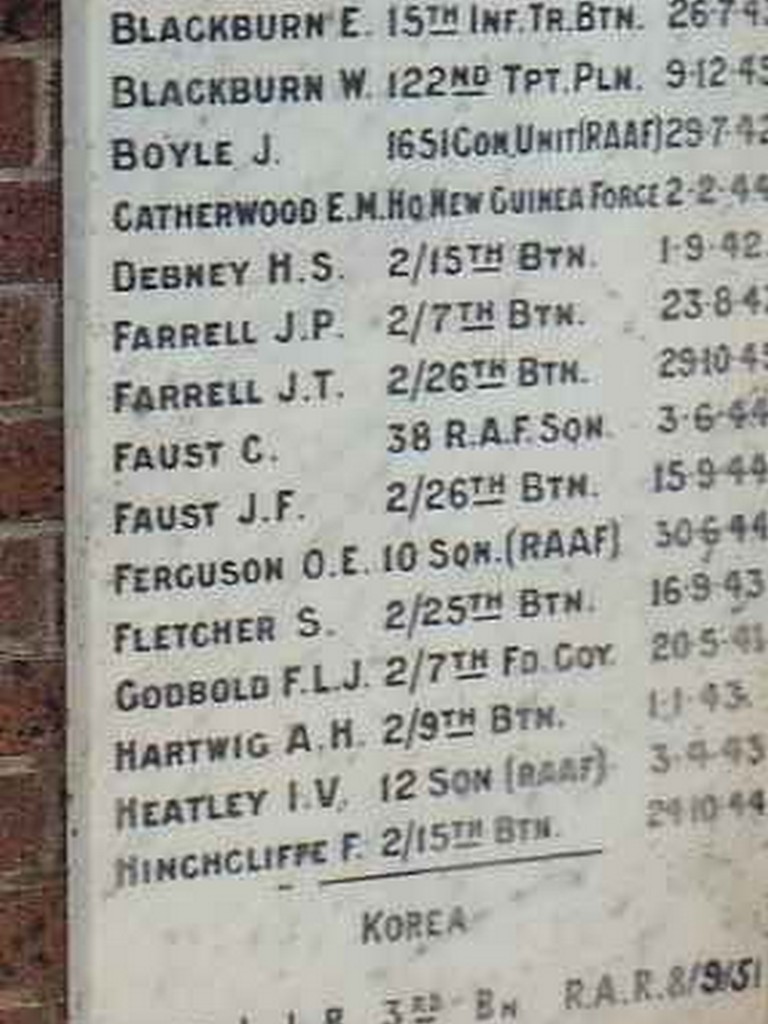 BLACKBURN E. 15TH INF. TR. BTN. 26·7·4
BLACKBURN W. 122ND TPT. PLN. 9·12·45
BOYLE J. 1651 CON. UNIT (RAAF) 29·7·42
CATHERWOOD E.M. HQ NEW GUINEA FORCE 2·2·44
DEBNEY H.S. 2/15TH BTN. 1·9·42.
FARRELL J.P. 2/7TH BTN. 23·8·4
FARRELL J.T. 2/26TH BTN. 29·10·45
FAUST C. 38 R.A.F. SQN. 3·6·44
FAUST J.F. 2/26TH BTN. 15·9·44
FERGUSON O.E. 10 SQN. (RAAF) 30·6·44
FLETCHER S. 2/25TH BTN. 16·9·43
GODBOLD F.L.J. 2/7TH FD. COY. 20·5·41
HARTWIG A.H. 2/9TH BTN. 1·1·43.
HEATLEY I.V. 12 SQN (RAAF) 3·4·43
HINCHCLIFFE F. 2/15TH BTN. 24·10·44
KOREA
3RD BN R.A.R. 8/9/51